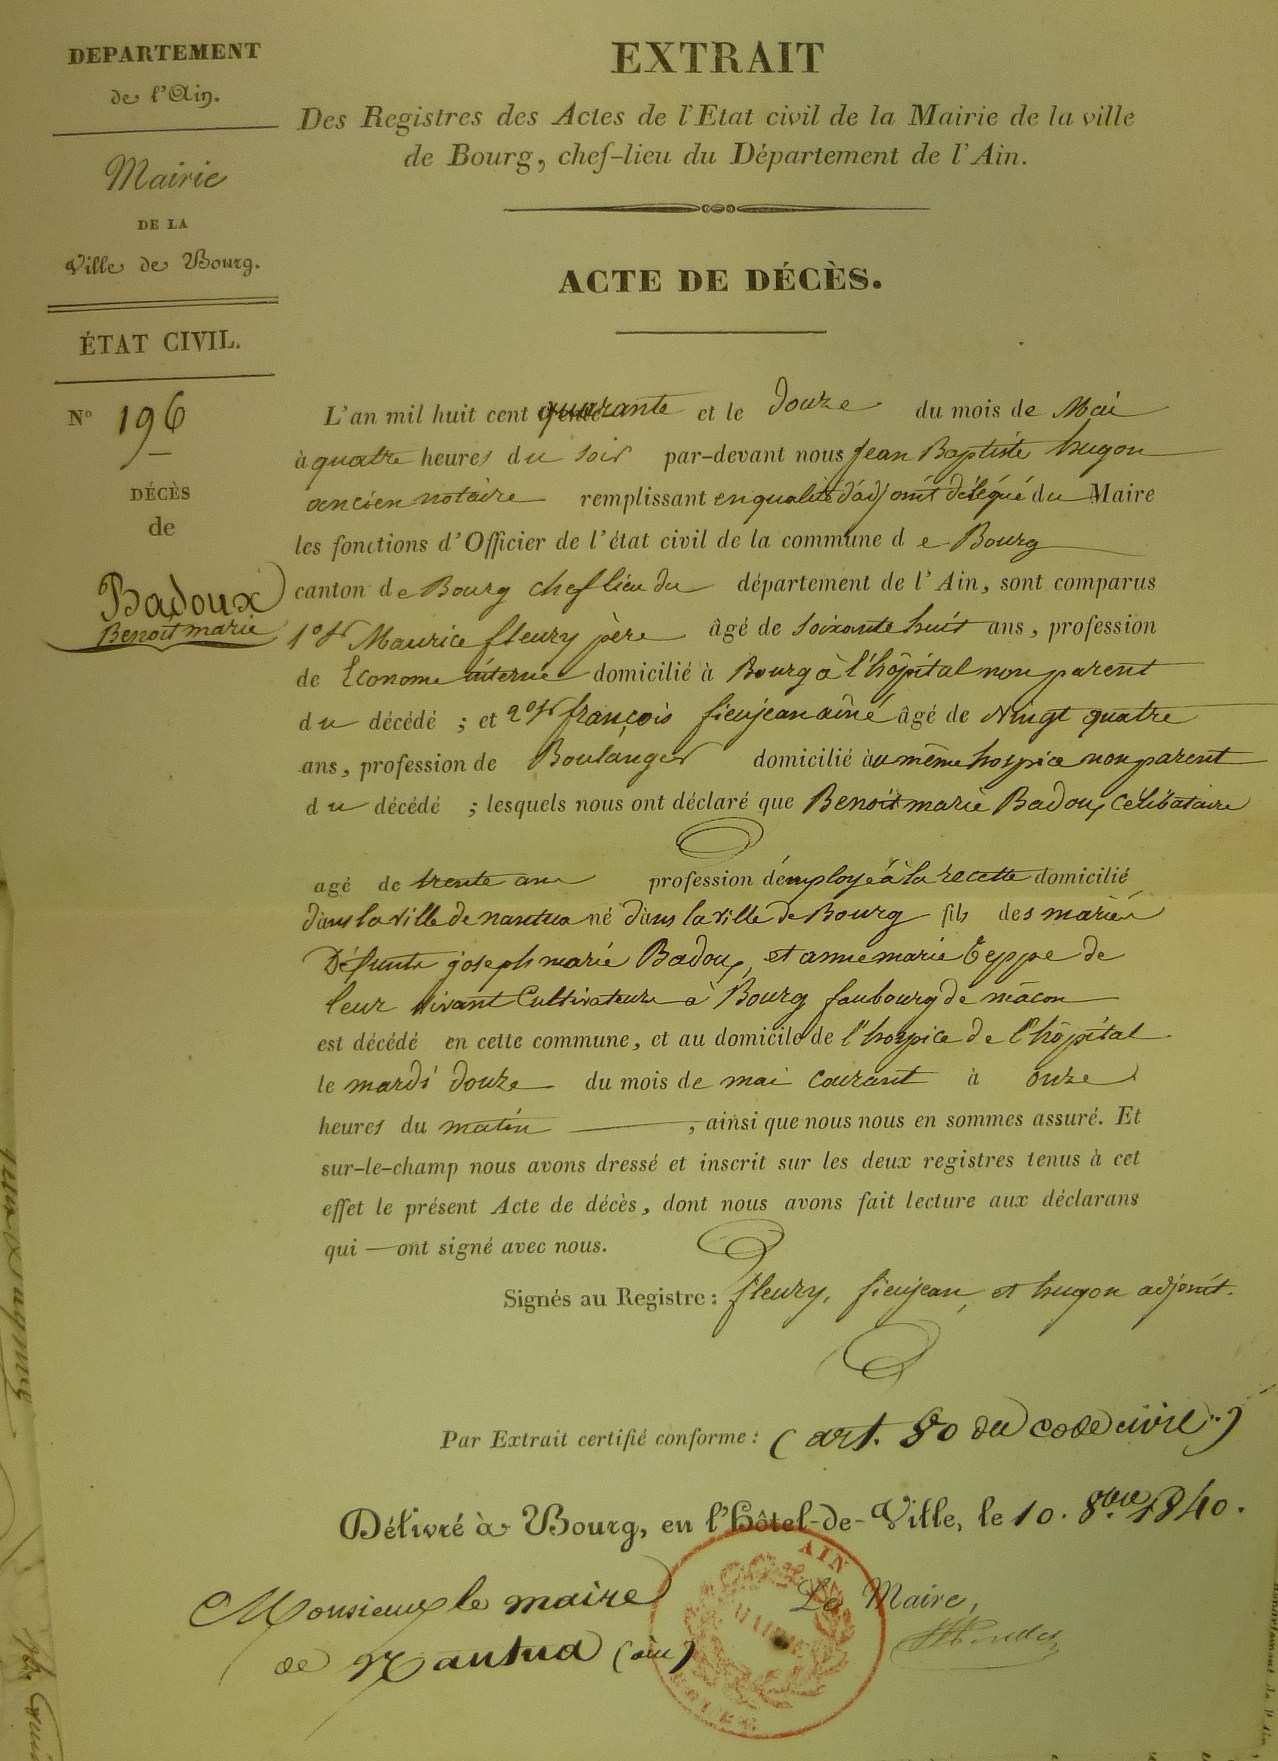 DEPARTEMENT
de l'Ain.
Mairie
DE LA
Ville de Bourg.
ÉTAT CIVIL.
N° 196
DÉCÈS
de
Badoux
Benoit marie
EXTRAIT
Des Registres des Actes de l'Etat civil de la Mairie de la ville
de Bourg, chef-lieu du Département de l'Ain.
ACTE DE DÉCÈS.
L'an mil huit cent quarante et le douze du mois de Mai
à quatre heures du soir par-devant nous Jean Baptiste hugon
ancien notaire remplissant en qualité d'adjoint délégué du Maire
les fonctions d'Officier de l'état civil de la commune de Bourg
canton de Bourg chef lieu du département de l'Ain, sont comparus
1° sr Maurice fleury père âgé de soixante huit ans, profession
de Econome interne domicilié à Bourg à l'hôpital non parent
du décédé ; et 2° sr françois fieujean ainé âgé de vingt quatre
ans, profession de Boulanger domicilié au même hospice non parent
du décédé ; lesquels nous ont déclaré que Benoit marie Badoux célibataire
agé de trente ans profession d'employé à la recette domicilié
dans la ville de nantua né dans la ville de Bourg fils des mariés
Défunts joseph marie Badoux, et anne marie Teppe de
leur vivant Cultivateurs à Bourg faubourg de mâcon
est décédé en cette commune, et au domicile de l'hospice de l'hôpital
le mardi douze du mois de mai courant à onze
heures du matin , ainsi que nous nous en sommes assuré. Et
sur-le-champ nous avons dressé et inscrit sur les deux registres tenus à cet
effet le présent Acte de décès, dont nous avons fait lecture aux déclarans
qui ont signé avec nous.
Signés au Registre : fleury, fieujean, et hugon adjoint.
Par Extrait certifié conforme : (art. 80 du code civil.)
Délivré à Bourg, en l'Hôtel-de-Ville, le 10. 8bre 1840.
Monsieur le maire
de Nantua (ain)
Le Maire,
AIN
MAIRIE
BOURG